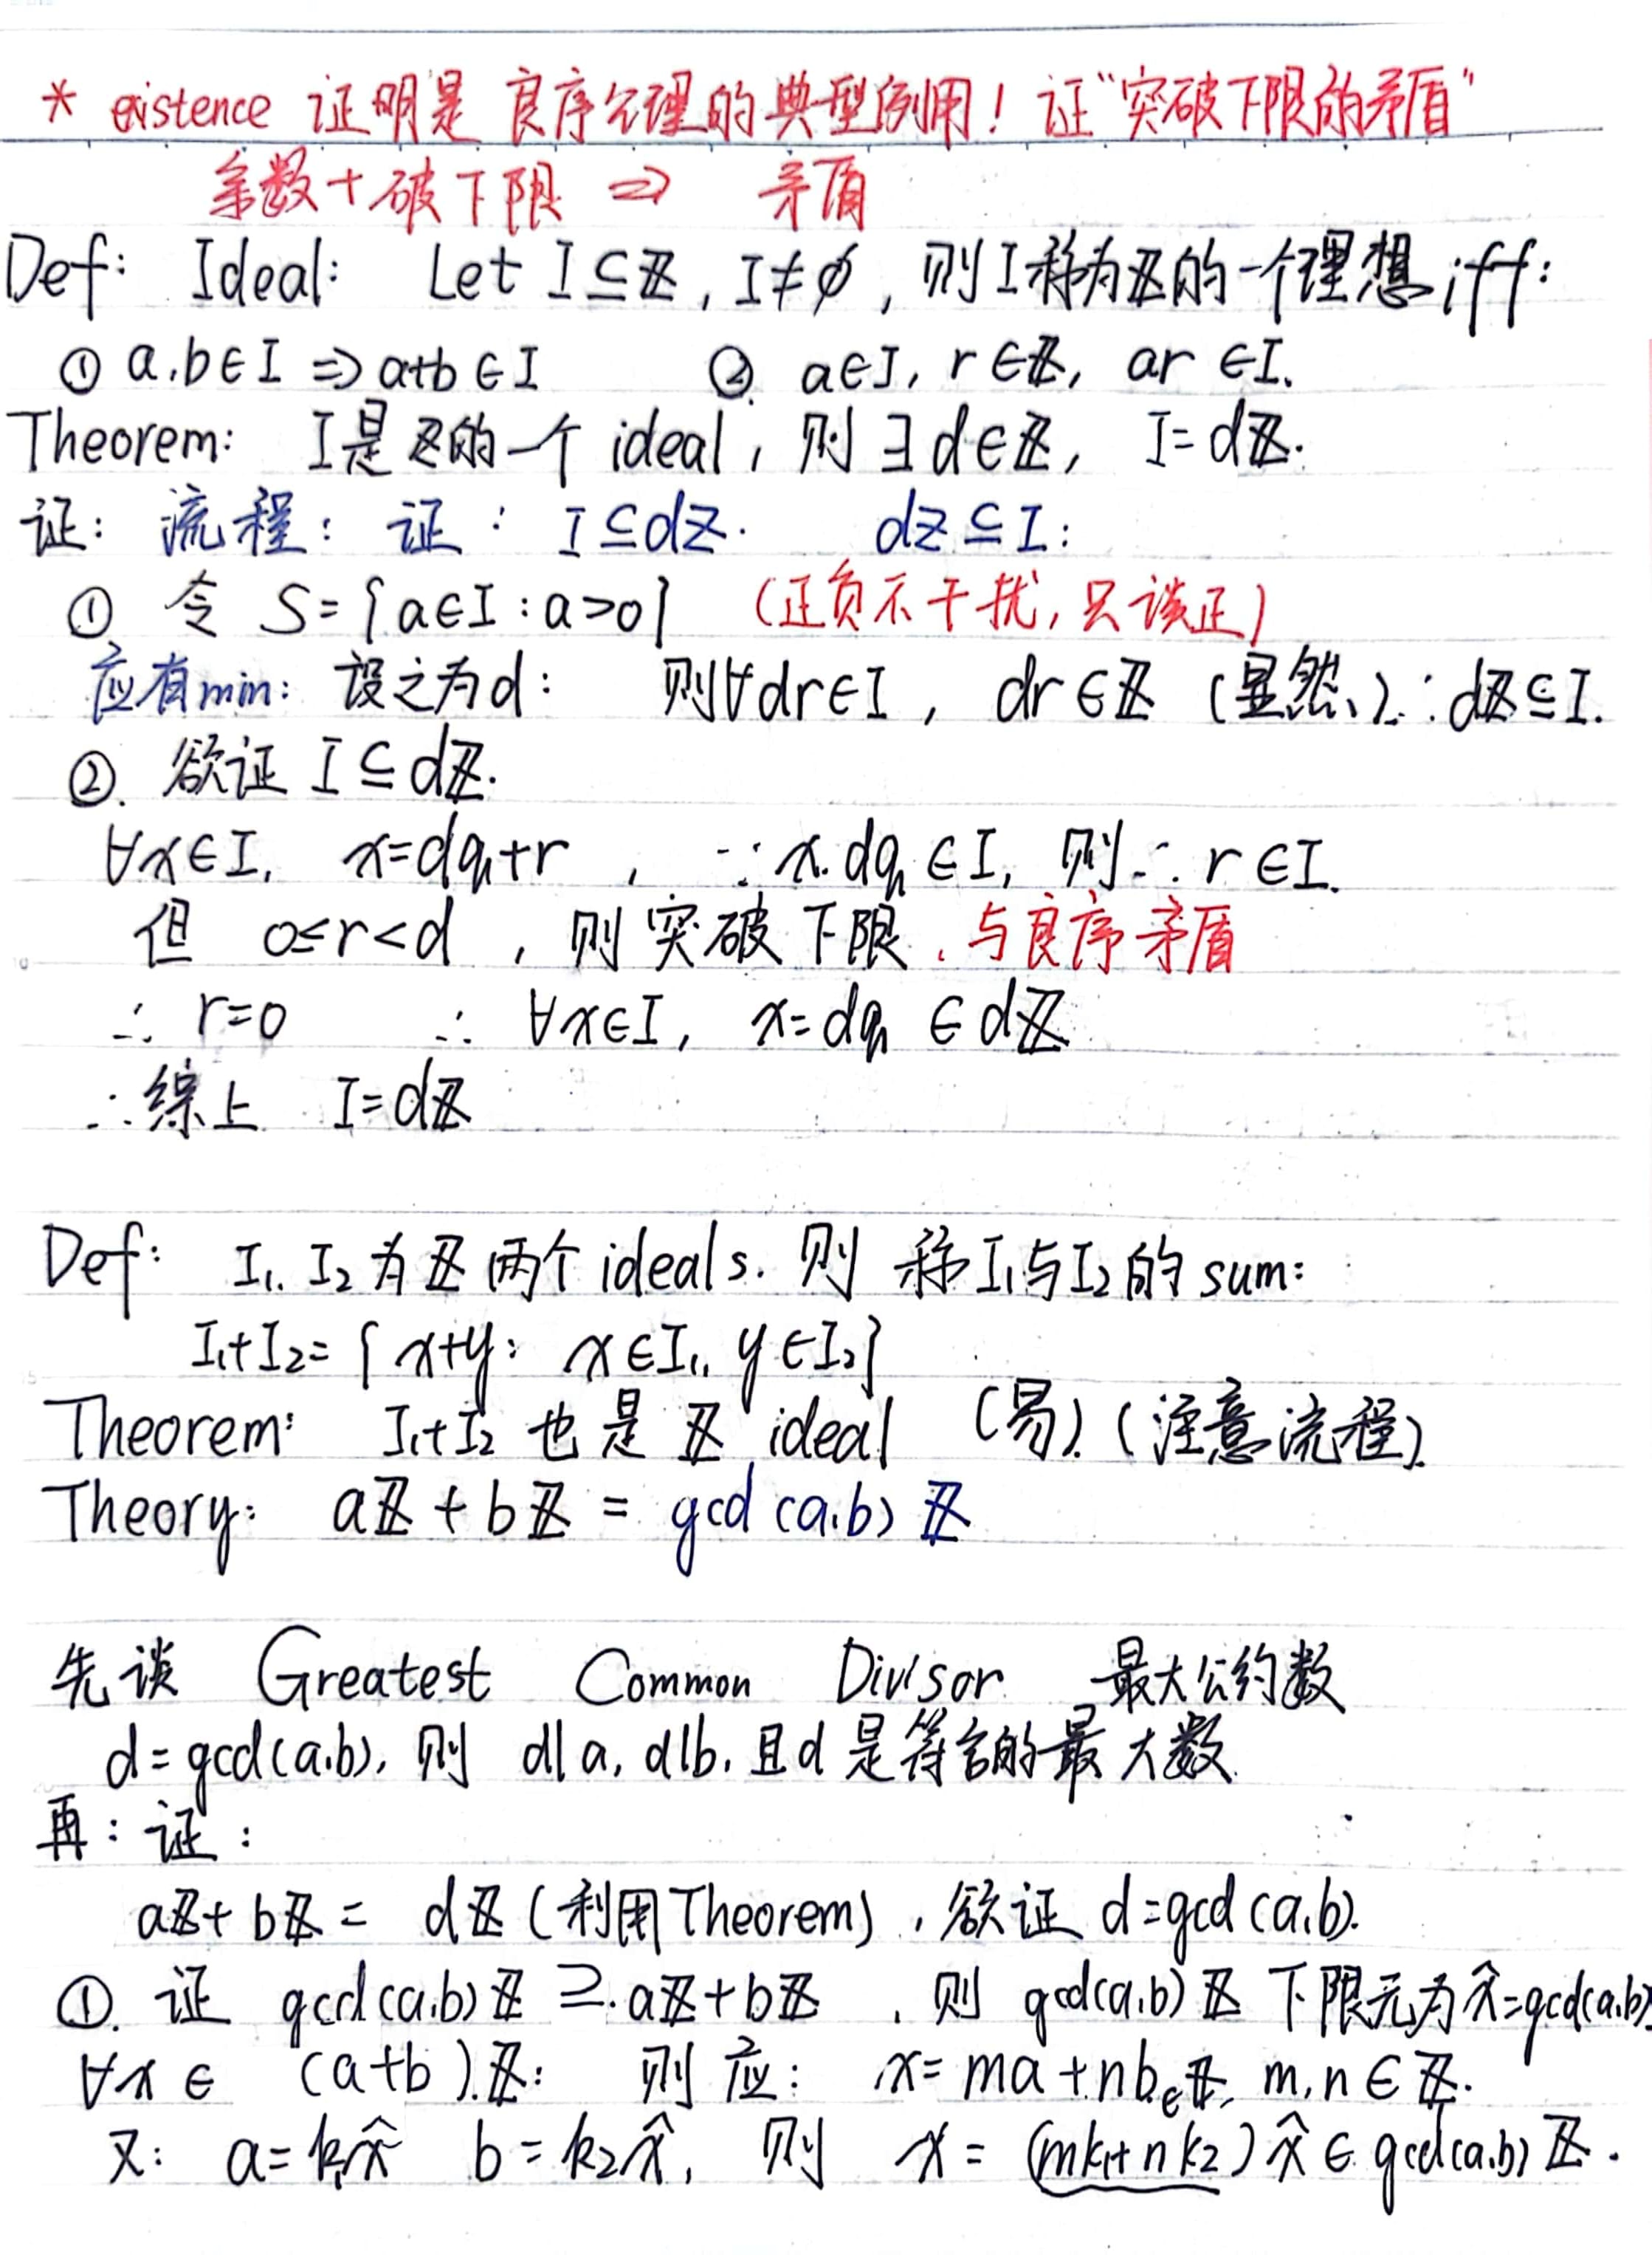 * existence 证明是 良序公理的典型例用！证“突破下限的矛盾”
余数+破下限 ⇒ 矛盾
Def: Ideal: Let I⊆ℤ, I≠∅, 则I称为ℤ的一个理想 iff:
① a,b∈I ⇒ a+b∈I ② a∈I, r∈ℤ, ar∈I.
Theorem: I是ℤ的一个 ideal, 则 ∃d∈ℤ, I=dℤ.
证: 流程: 证: I⊆dℤ. dℤ⊆I:
① 令 S={a∈I:a>0} (正负不干扰,只谈正)
应有min: 设之为d: 则∀dr∈I, dr∈ℤ (显然、) ∴dℤ⊆I.
②. 欲证 I⊆dℤ.
∀x∈I, x=dq₁+r, ∵x.dq₁∈I, 则∴r∈I.
但 0≤r<d, 则突破下限.与良序矛盾
∴ r=0 ∴ ∀x∈I, x=dq₁∈dℤ
∴综上 I=dℤ
Def: I₁. I₂为ℤ两个ideals. 则 称I₁与I₂的sum:
I₁+I₂={x+y: x∈I₁, y∈I₂}
Theorem: I₁+I₂ 也是 ℤ ideal (易). (注意流程).
Theory: aℤ+bℤ = gcd(a,b)ℤ
先谈 Greatest Common Divisor 最大公约数
d=gcd(a,b), 则 d|a, d|b, 且d是符合的最大数.
再: 证:
aℤ+bℤ= dℤ(利用Theorem), 欲证 d=gcd(a,b).
①. 证 gcd(a,b)ℤ⊇aℤ+bℤ, 则 gcd(a,b)ℤ 下限元为x̂=gcd(a,b).
∀x∈ (a+b)ℤ: 则应: x=ma+nb∈ℤ, m,n∈ℤ.
又: a=k₁x̂ b=k₂x̂, 则 x=(mk₁+nk₂)x̂∈gcd(a,b)ℤ.